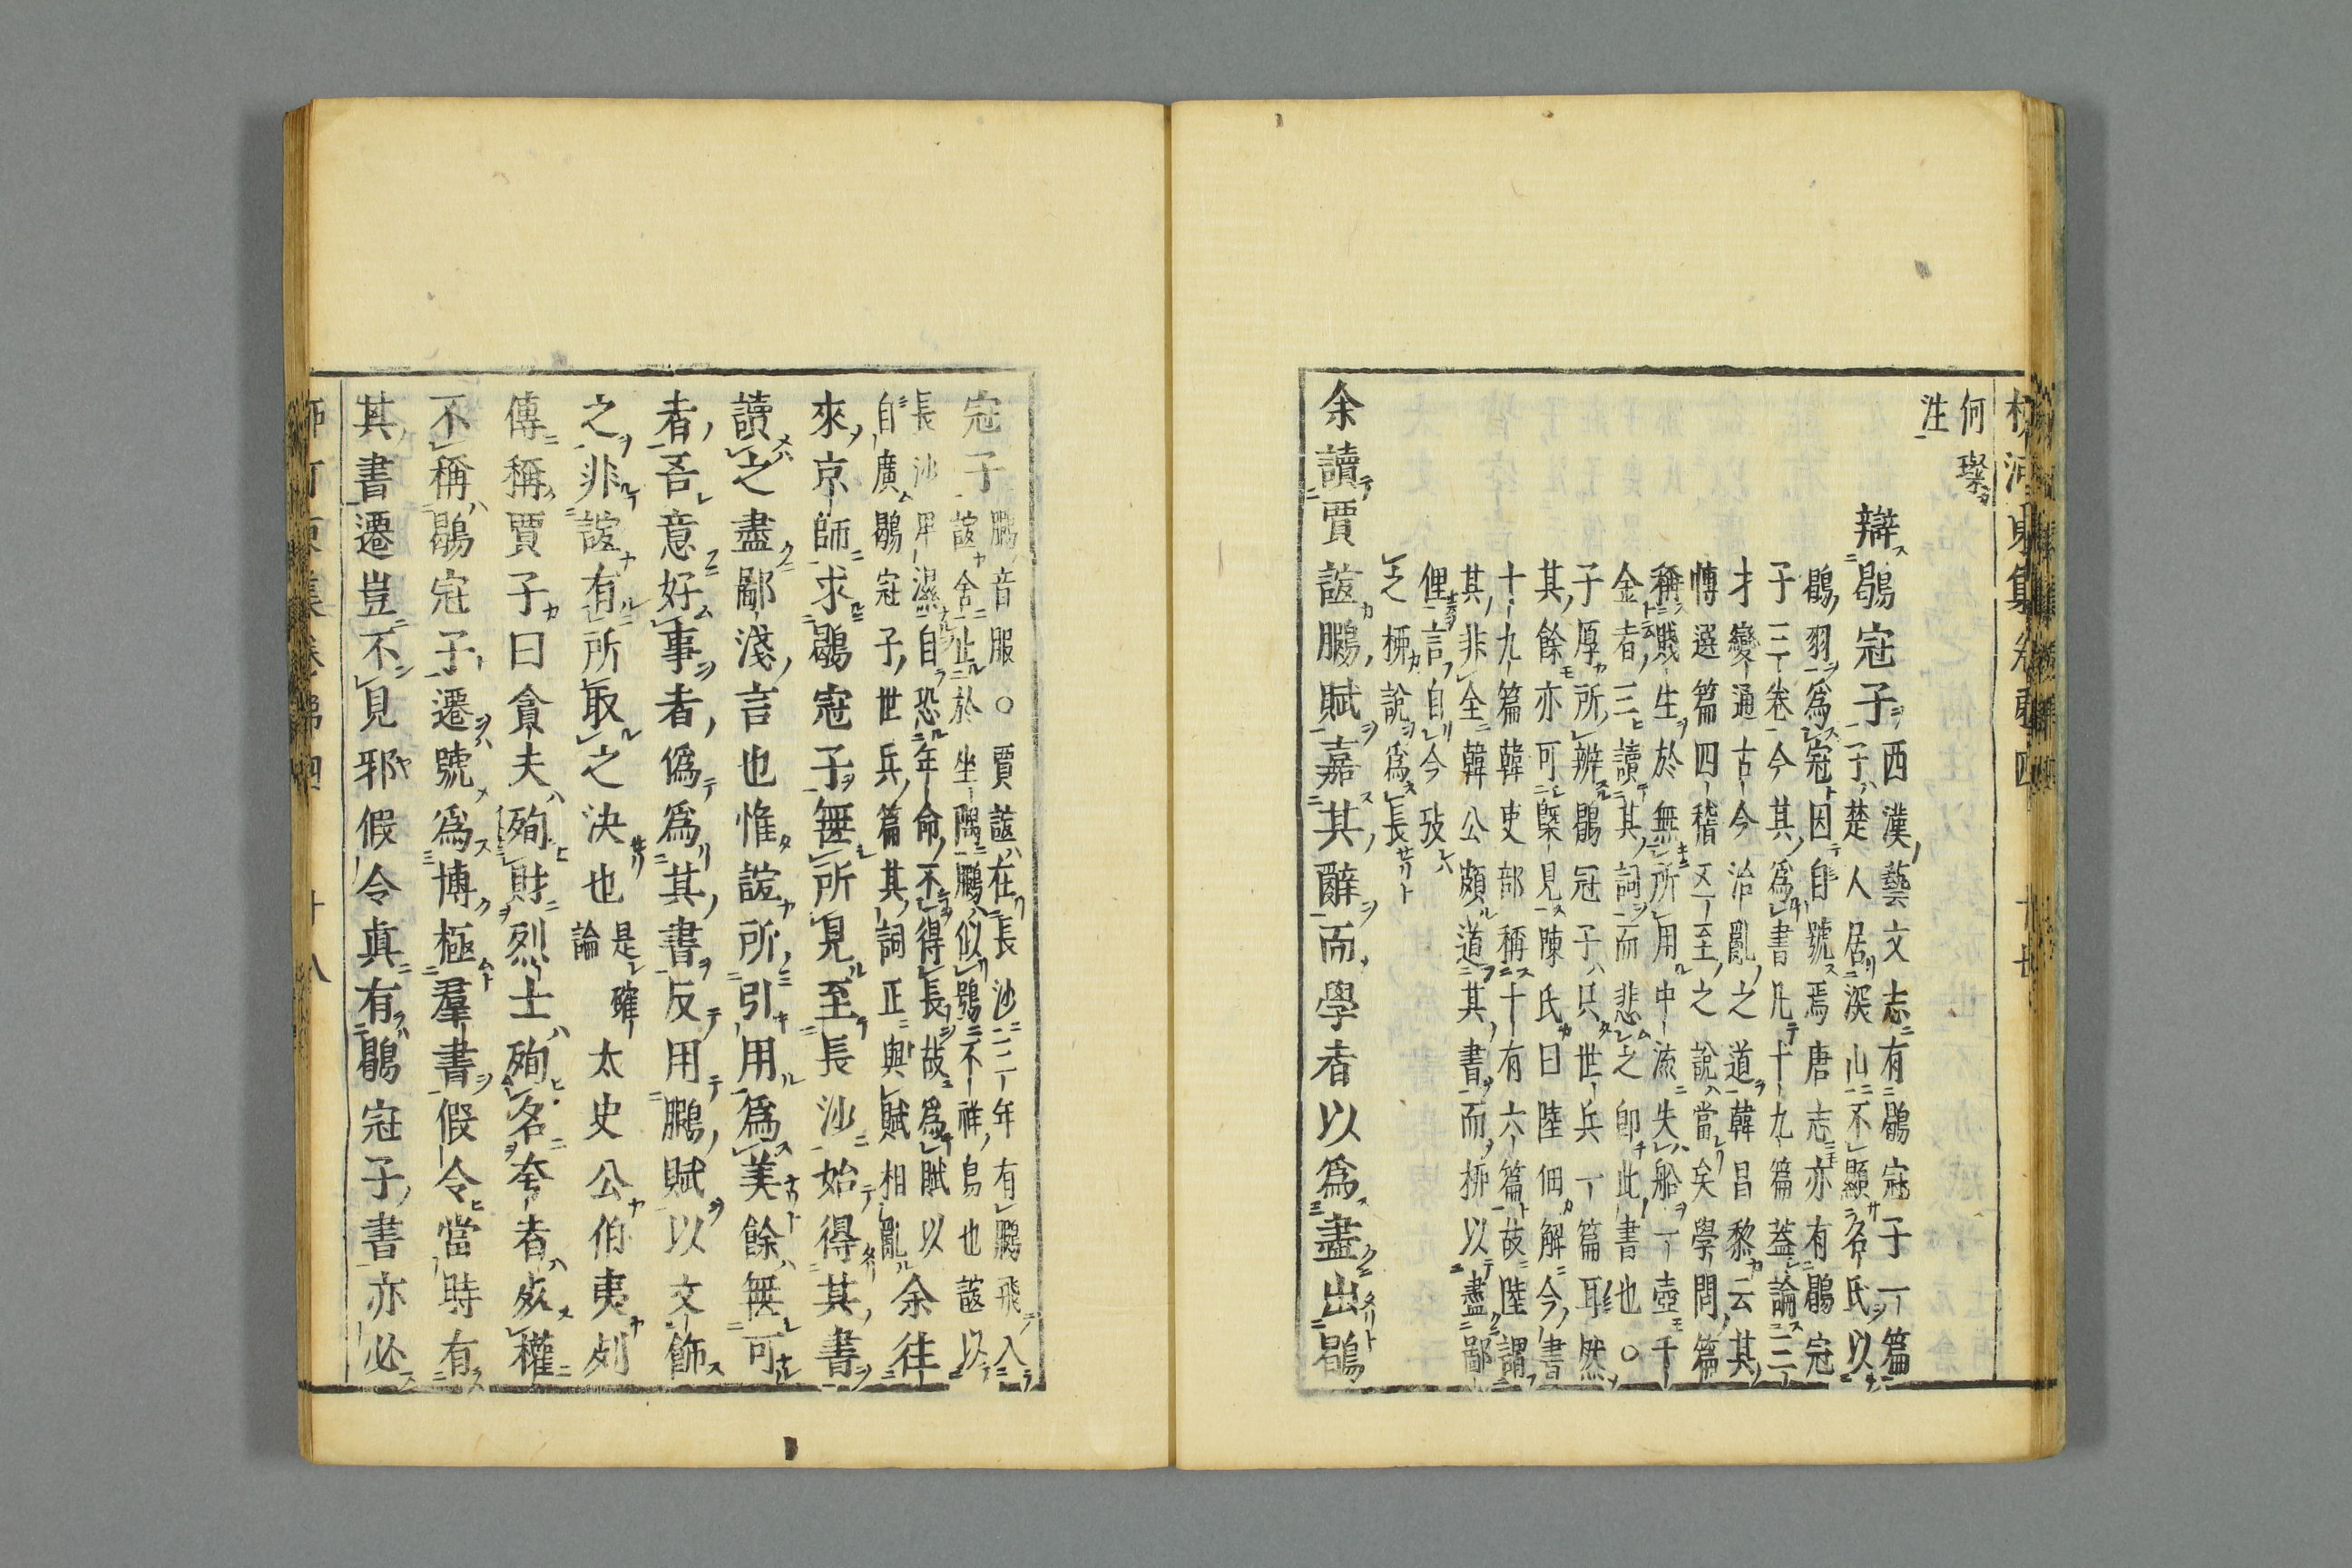 何璨
注
辯鶡冠子西漢藝文志有鶡冠子一篇
一子楚人居深山不顯名氏以
鶡羽爲冠因自號焉唐志亦有鶡冠
子三卷今其爲書凡十九篇蓋論三
才變通古今治亂之道韓昌黎云其
愽選篇四稽五至之說當矣學問篇
稱賤生於無所用中流失船一壺千
金者三讀其詞而悲之卽此書也○
子厚所辨鶡冠子只世兵一篇耳然
其餘亦可槩見陳氏曰陸佃解今書
十九篇韓吏部稱十有六篇故陸謂
其非全韓公頗道其書而柳以盡鄙
俚言自今攷
之柳說爲長
余讀賈誼鵩賦嘉其辭而學者以爲盡出鶡
冠子鵩音服○賈誼在長沙三年有鵩飛入
誼舍止於坐隅鵩似鴞不祥鳥也誼以
長沙卑濕自恐年命不得長故爲賦以
自廣鶡冠子世兵篇其詞正與賦相亂余往
來京師求鶡冠子無所見至長沙始得其書
讀之盡鄙淺言也惟誼所引用爲美餘無可
者吾意好事者僞爲其書反用鵩賦以文飾
之非誼有所取之決也是確論太史公伯夷列
傳稱賈子曰貪夫殉財烈士殉名夸者死權
不稱鶡冠子遷號爲博極羣書假令當時有
其書遷豈不見邪假令真有鶡冠子書亦必
十八